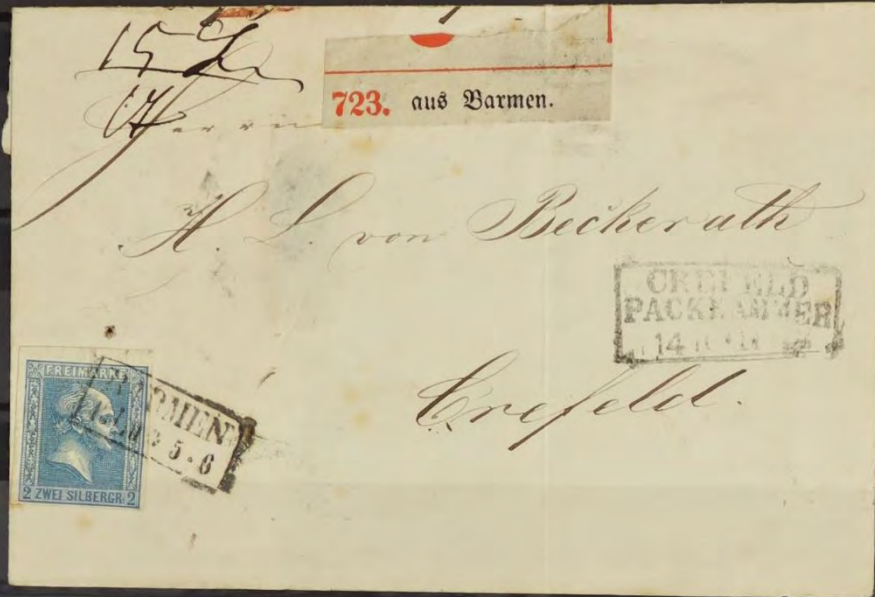 723. aus Barmen.
Herrn
H. L. von Beckerath
CREFELD
PACKKAMMER
14
Crefeld.
FREIMARKE
BARMEN
5-6
2 ZWEI SILBERGR. 2